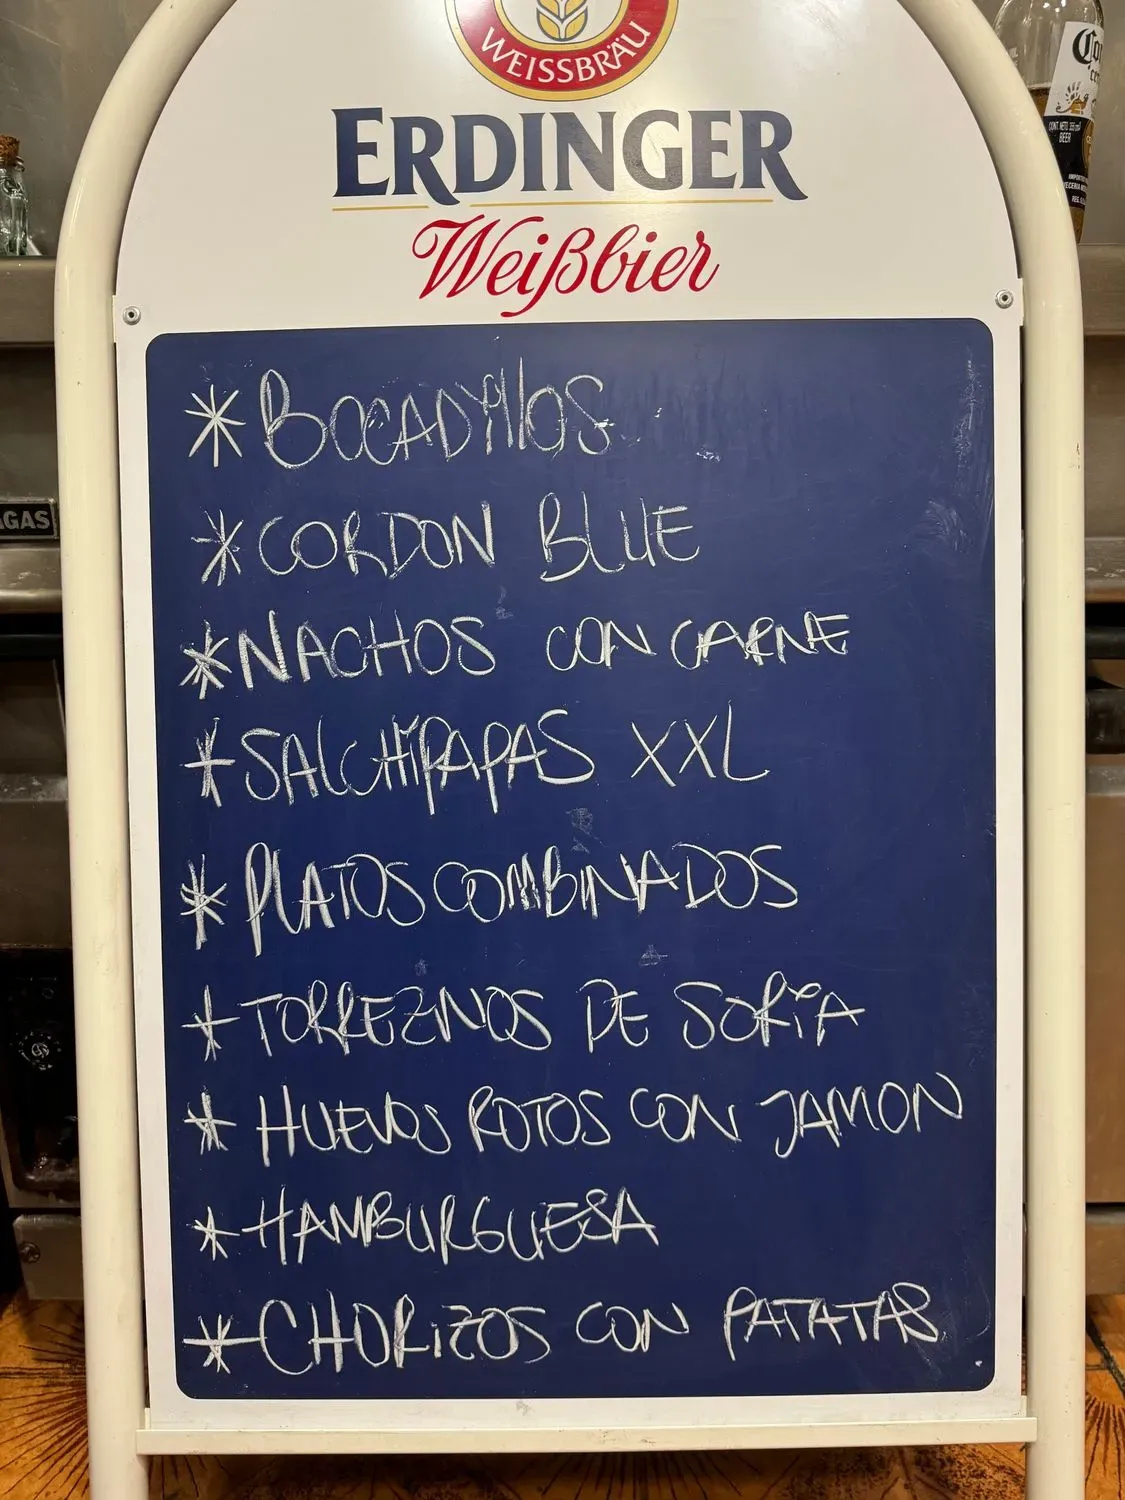 WEISSBRÄU
ERDINGER
Weißbier
* BOCADYllOS
* CORDON BLUE
* NACHOS CON CARNE
* SALCHiPAPAS XXL
* PLATOS COMBINADOS
* TORREZNOS DE SORiA
* HUEVOS ROTOS CON JAMON
* HAMBURGUESA
* CHORiZOS CON PATATAS
AGAS
BEER